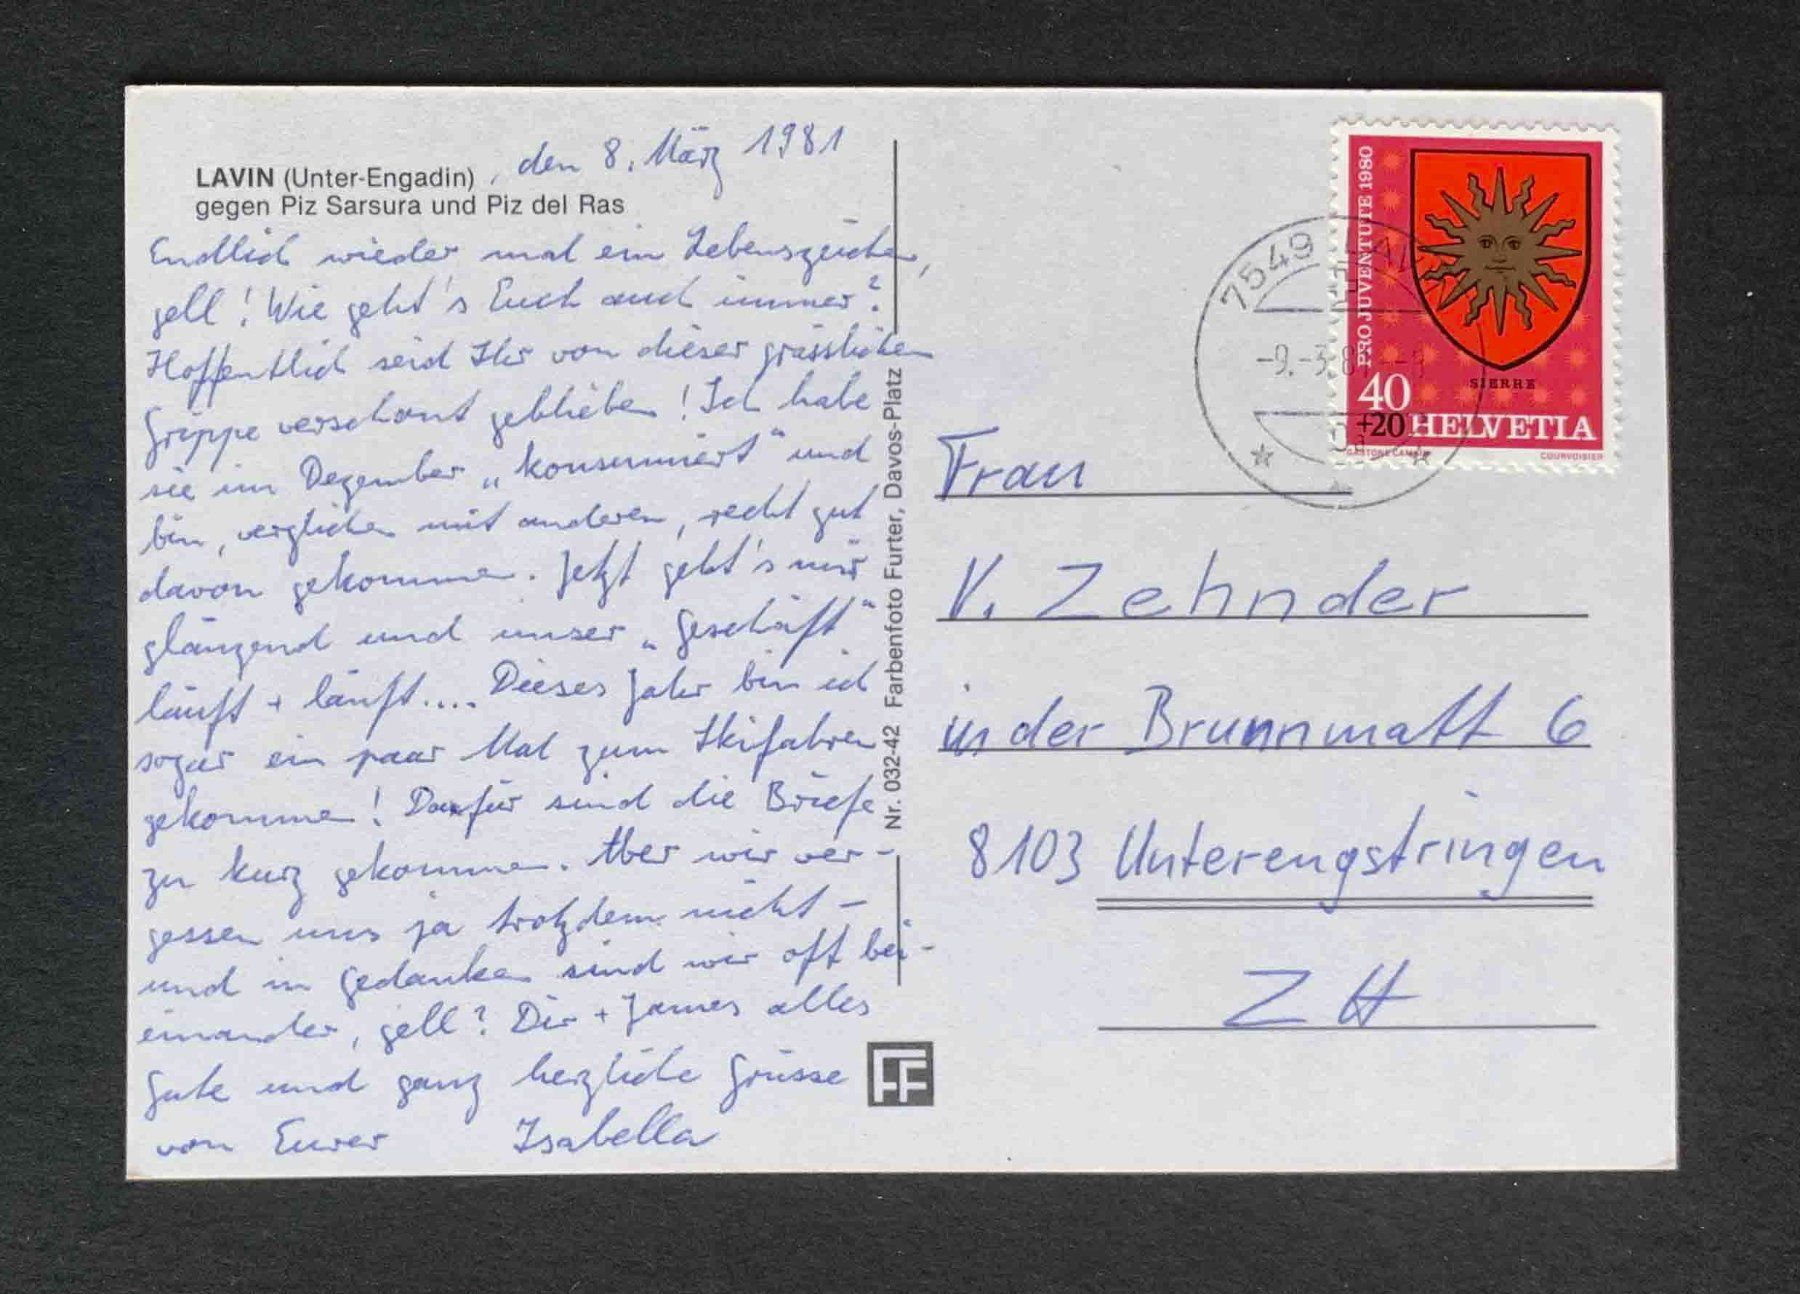 LAVIN (Unter-Engadin), den 8. März 1981
gegen Piz Sarsura und Piz del Ras
Endlich wieder mal ein Lebenszeichen,
gell! Wie geht's Euch auch immer?
Hoffentlich seid Ihr von dieser grässlichen
Grippe verschont geblieben! Ich habe
sie im Dezember „konsumiert“ und
bin, verglichen mit anderen, recht gut
davon gekommen. Jetzt geht's mir
glänzend und unser „Geschäft“
läuft + läuft.... Dieses Jahr bin ich
sogar ein paar Mal zum Skifahren
gekommen! Dafür sind die Briefe
zu kurz gekommen. Aber wir ver-
gessen uns ja trotzdem nicht –
und in Gedanken sind wir oft bei-
einander, gell? Dir + James alles
Gute und ganz herzliche Grüsse
von Eurer Isabella
Nr. 032-42 Farbenfoto Furter, Davos-Platz
FF
PRO JUVENTUTE 1980
SIERRE
40
+20 HELVETIA
COURVOISIER
7549 LAVIN
-9.-3.81
Frau
V. Zehnder
in der Brunnmatt 6
8103 Unterengstringen
ZH